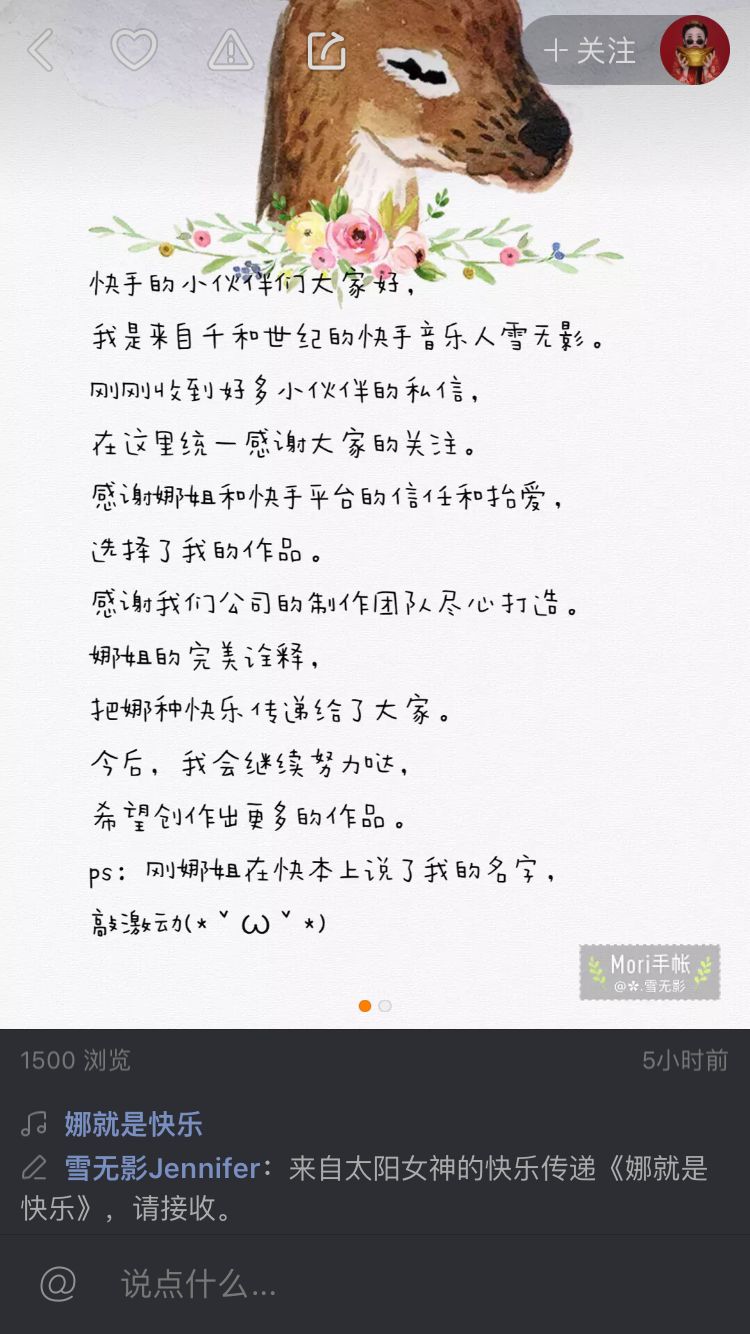 + 关注
快手的小伙伴们大家好，
我是来自千和世纪的快手音乐人雪无影。
刚刚收到好多小伙伴的私信，
在这里统一感谢大家的关注。
感谢娜姐和快手平台的信任和抬爱，
选择了我的作品。
感谢我们公司的制作团队尽心打造。
娜姐的完美诠释，
把娜种快乐传递给了大家。
今后，我会继续努力哒，
希望创作出更多的作品。
ps：刚娜姐在快本上说了我的名字，
敲激动(*ˇωˇ*)
Mori手帐
@✲.雪无影
1500 浏览
5小时前
娜就是快乐
雪无影Jennifer：来自太阳女神的快乐传递《娜就是
快乐》，请接收。
@ 说点什么...